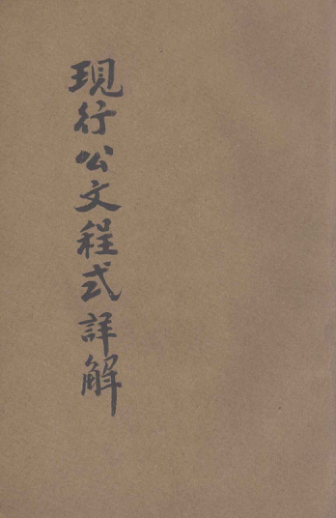 現行公文程式詳解